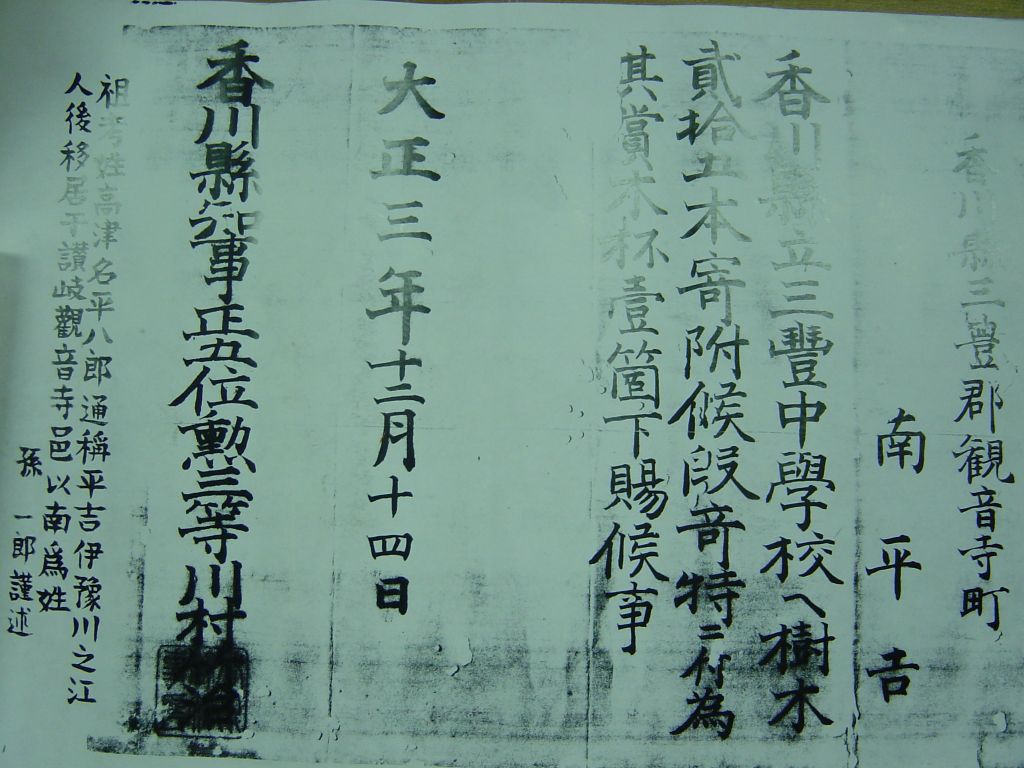 香川縣三豊郡観音寺町
南平吉
香川縣立三豐中學校へ樹木
貳拾五本寄附候段竒特ニ付為
其賞木杯壹箇下賜候事
大正三年十二月十四日
香川縣知事正五位勲三等川村竹治
祖考姓高津名平八郎通稱平吉伊豫川之江
人後移居于讃岐觀音寺邑以南爲姓
孫 一郎謹述